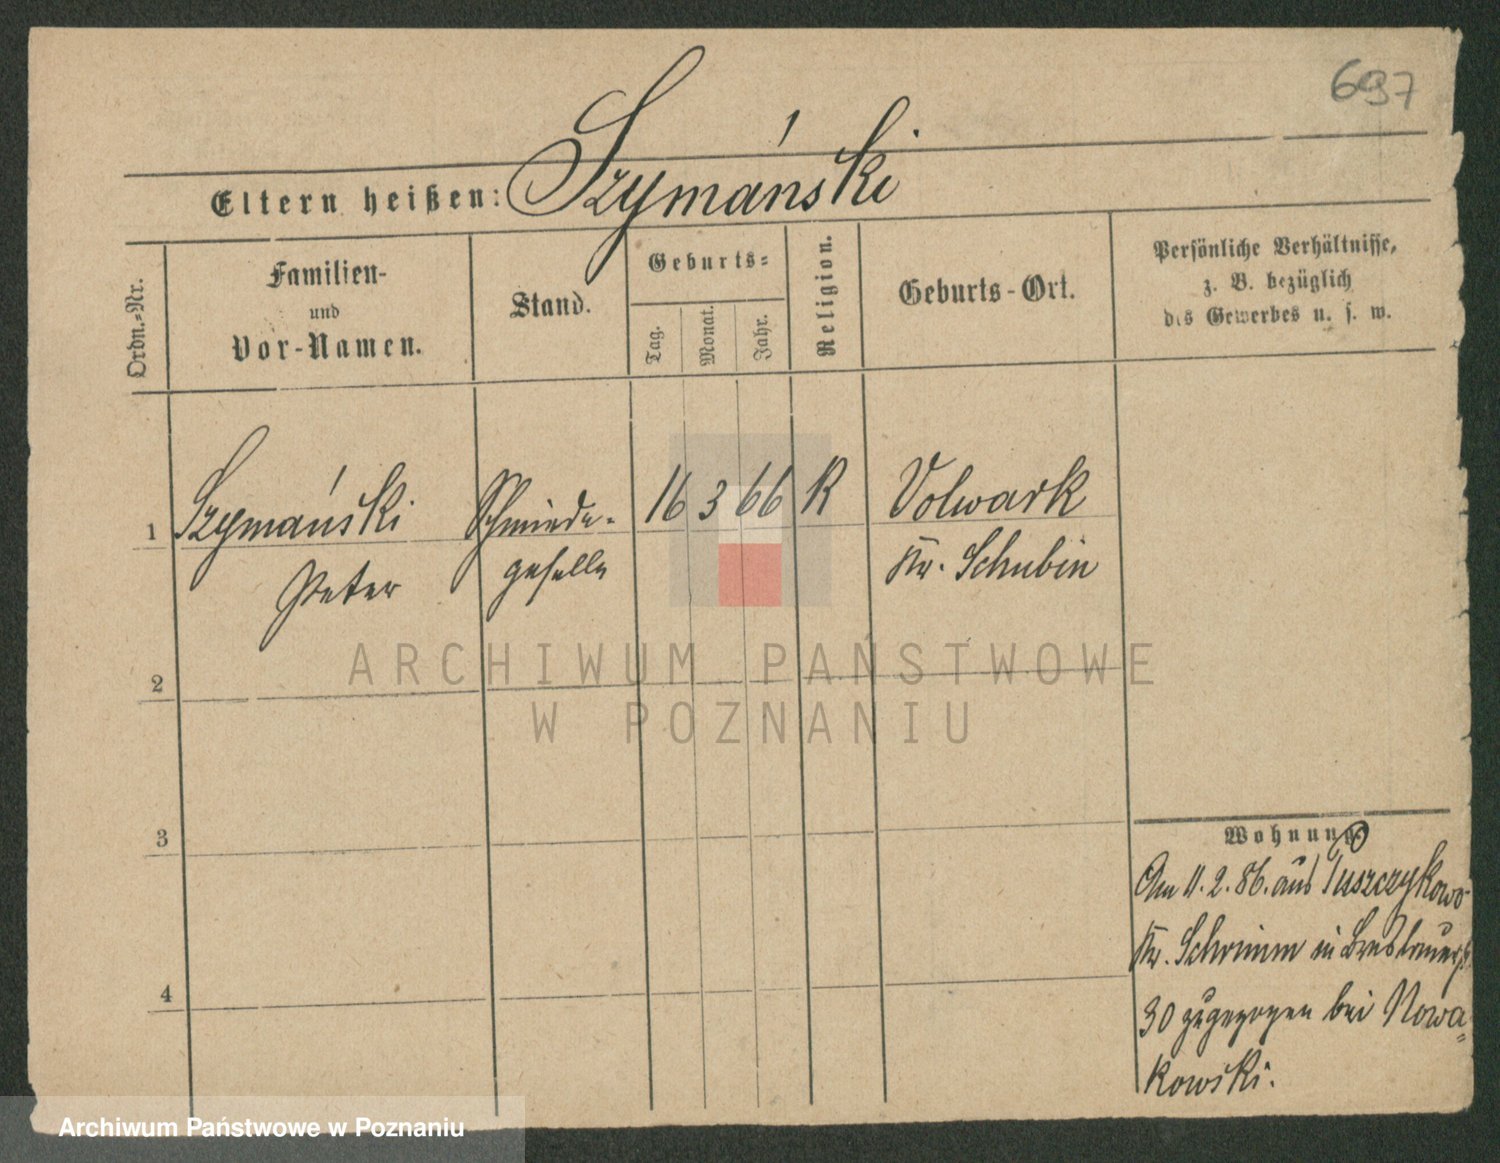 697
Eltern heißen: Szymánski
Ordn.-Nr.
Familien-
und
Vor-Namen.
Stand.
Geburts-
Tag.
Monat.
Jahr.
Religion.
Geburts-Ort.
Persönliche Verhältnisse,
z. B. bezüglich
des Gewerbes u. s. w.
1 Szymański Schmiede- 16 3 66 K Volwark
Peter geselle Kr. Schubin
ARCHIWUM PAŃSTWOWE
W POZNANIU
2
3
4
Wohnung.
Am 11. 2. 86. aus Puszczykowo
Kr. Schrimm in Breslauerst
30 zugezogen bei Nowa-
kowski.
Archiwum Państwowe w Poznaniu